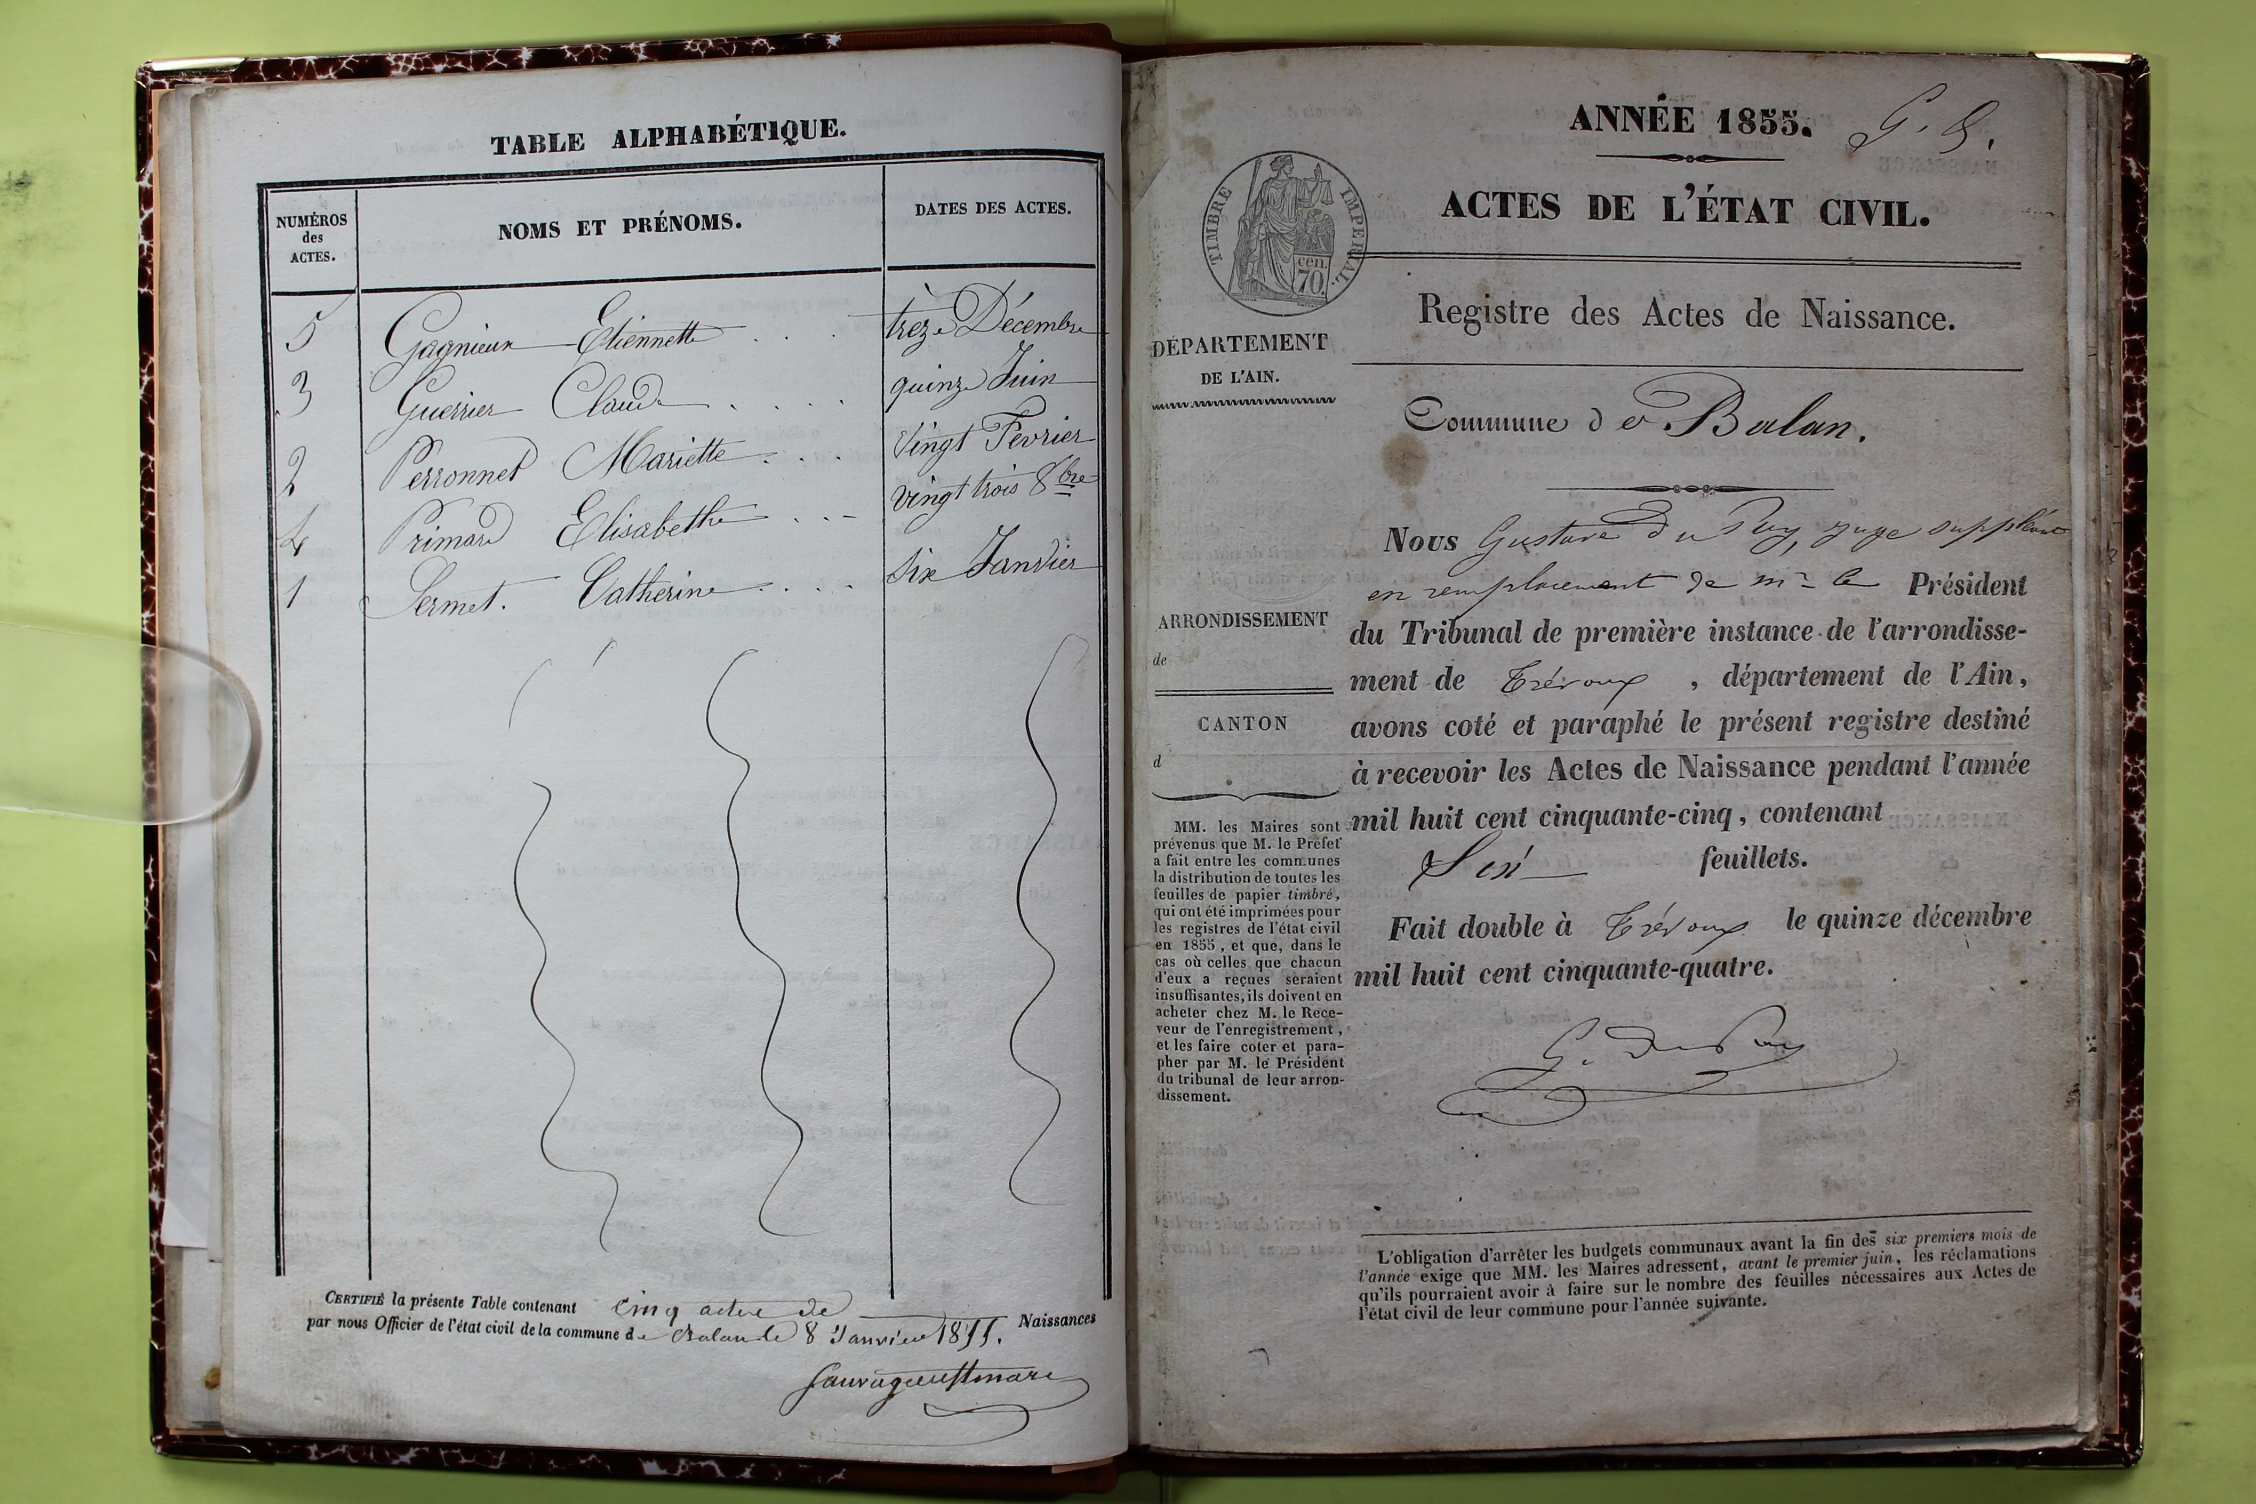 TABLE ALPHABÉTIQUE.
NUMÉROS
des
ACTES.
NOMS ET PRÉNOMS.
DATES DES ACTES.
5 Gagnieux Etiennette . . . treze Décembre
3 Guerrier Claude . . . . quinze Juin
2 Perronnet Mariette . . . Vingt Fevrier
4 Primard Elisabethe . . . vingt trois 8bre
1 Sermet. Catherine . . . . Six Janvier
CERTIFIÉ la présente Table contenant cinq actes de Naissances
par nous Officier de l'état civil de la commune de Balan le 8 Janvier 1855.
ANNÉE 1855.
ACTES DE L'ÉTAT CIVIL.
TIMBRE IMPERIAL.
cen.
70.
Registre des Actes de Naissance.
DÉPARTEMENT
DE L'AIN.
Commune de Balan.
ARRONDISSEMENT
de
CANTON
d
MM. les Maires sont
prévenus que M. le Préfet
a fait entre les communes
la distribution de toutes les
feuilles de papier timbré,
qui ont été imprimées pour
les registres de l'état civil
en 1855, et que, dans le
cas où celles que chacun
d'eux a reçues seraient
insuffisantes, ils doivent en
acheter chez M. le Rece-
veur de l'enregistrement,
et les faire coter et para-
pher par M. le Président
du tribunal de leur arron-
dissement.
Nous Gustave Du Puy, juge suppléant
en remplacement de Mr le Président
du Tribunal de première instance de l'arrondisse-
ment de Trévoux, département de l'Ain,
avons coté et paraphé le présent registre destiné
à recevoir les Actes de Naissance pendant l'année
mil huit cent cinquante-cinq, contenant
Six feuillets.
Fait double à Trévoux le quinze décembre
mil huit cent cinquante-quatre.
G. Du Puy
L'obligation d'arrêter les budgets communaux avant la fin des six premiers mois de
l'année exige que MM. les Maires adressent, avant le premier juin, les réclamations
qu'ils pourraient avoir à faire sur le nombre des feuilles nécessaires aux Actes de
l'état civil de leur commune pour l'année suivante.